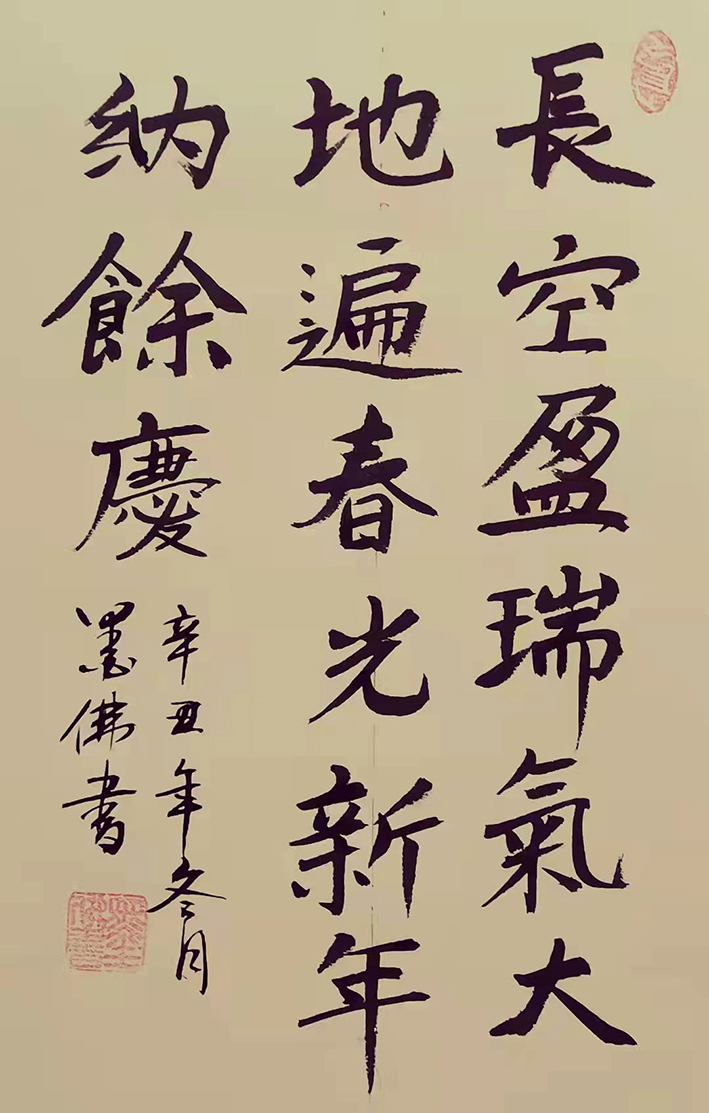 長空盈瑞氣大
地遍春光新年
納餘慶
辛丑年冬月
墨佛書